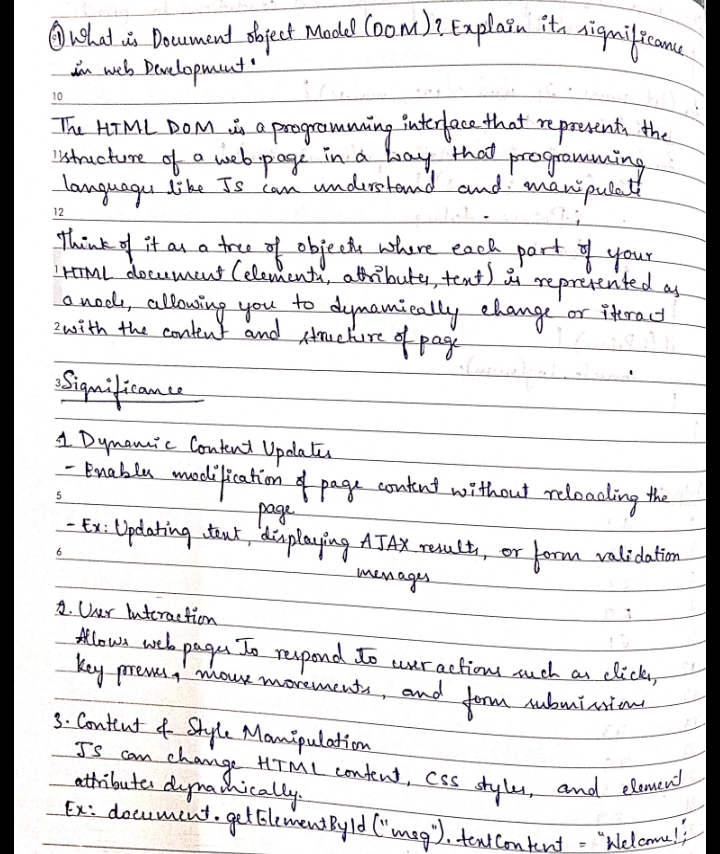 ① What is Document object Model (DOM)? Explain its significance
in web Development.
10
The HTML DOM is a programming interface that represents the
11 structure of a web page in a way that programming
languages like JS can understand and manipulate
12
Think of it as a tree of objects where each part of your
1 HTML document (elements, attributes, text) is represented as
a node, allowing you to dynamically change or iteract
2 with the content and structure of page
3 Significance
1 Dynamic Content Updates
- Enables modification of page content without reloading the
5
page.
- Ex: Updating text, displaying AJAX results, or form validation
6
messages
2. User Interaction
Allows web pages To respond to user actions such as clicks,
key presses, mouse movements, and form submissions
3. Content & Style Manipulation
JS can change HTML content, CSS styles, and element
attributes dynamically.
Ex: document.getElementById("msg").textContent = "Welcome!";